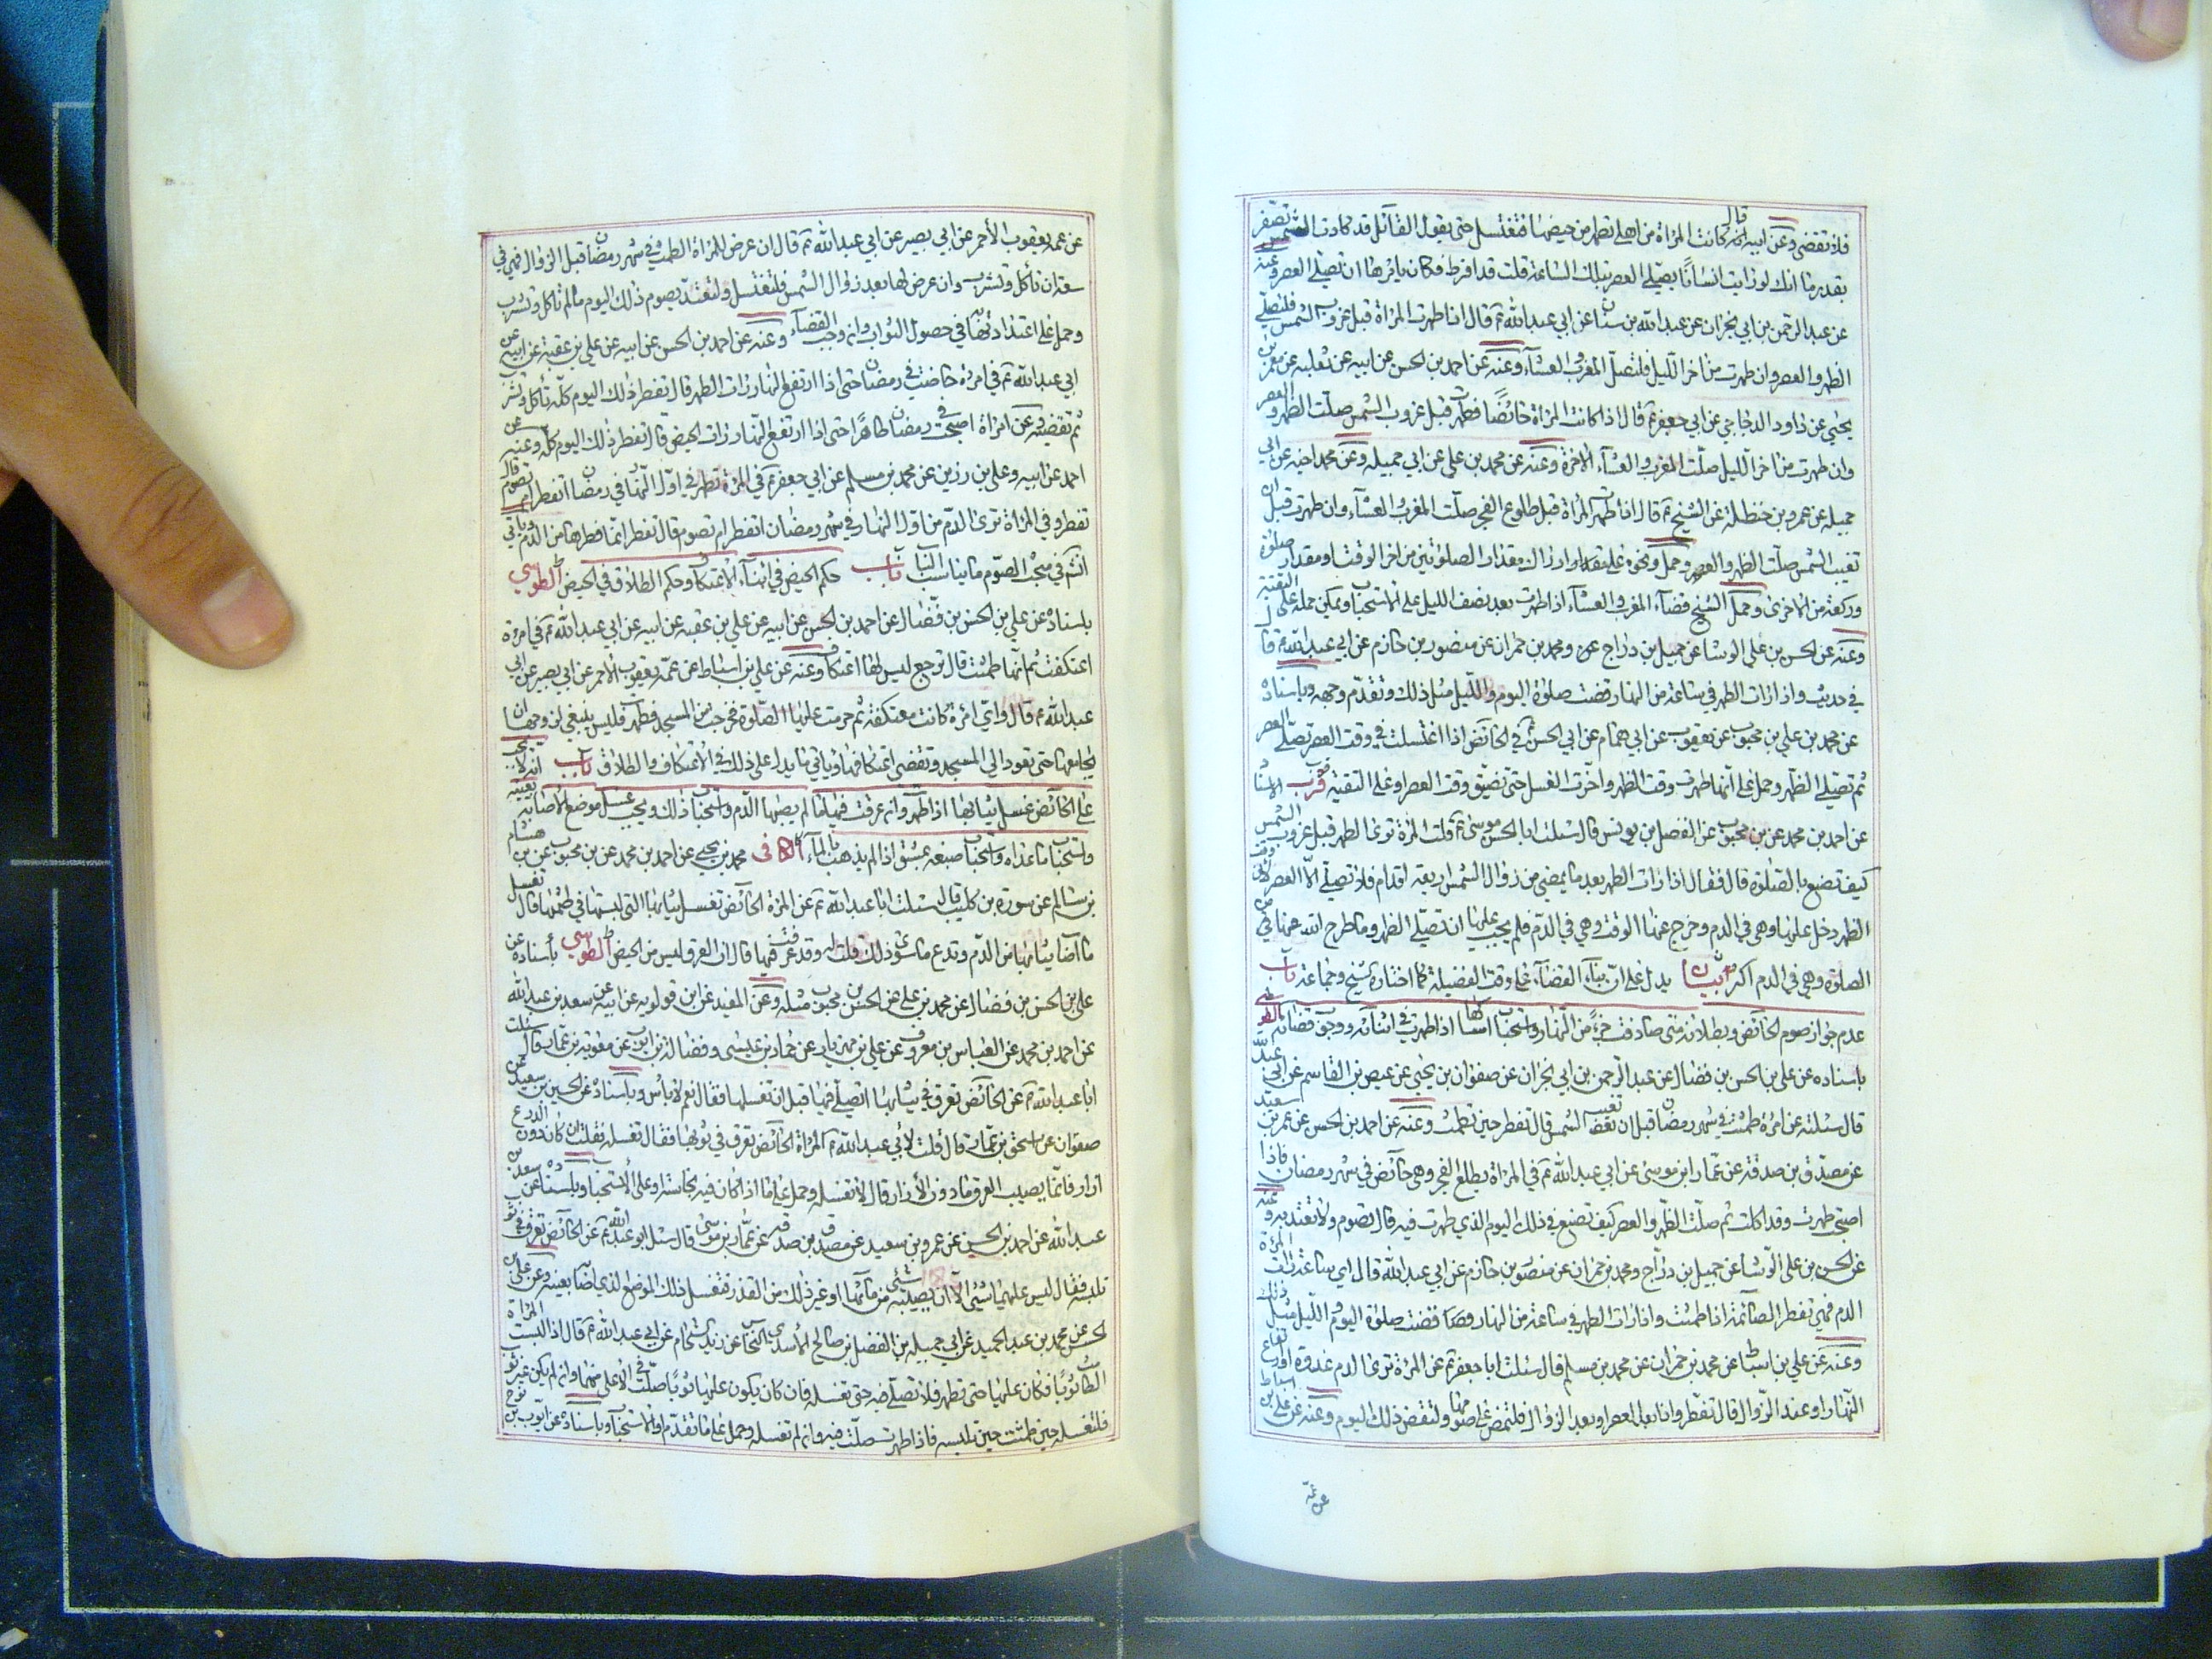 فلا تقضى وعن ابيه قال كانت المرأة من اهلي تطهر من حيضها فتغتسل حتى يقول القائل قد كادت الشمس تصفر
بقدر ما انك لو رايت انسانا يصلي العصر تلك الساعة قلت قد افرط فكان يأمرها ان تصلي العصر وعنه
عن عبد الرحمن بن ابي نجران عن عبدالله بن سنان عن ابي عبدالله ع قال اذا طهرت المرأة قبل غروب الشمس فلتصلي
الظهر والعصر وان طهرت من اخر الليل فلتصل المغرب والعشاء وعنه عن احمد بن الحسن عن ابيه عن ثعلبه عن معمر بن
يحيى عن داود الدجاجي عن ابي جعفر ع قال اذا كانت المرأة حائضا فطهرت قبل غروب الشمس صلت الظهر والعصر
وان طهرت من اخر الليل صلت المغرب والعشاء الاخرة وعنه عن محمد بن علي عن ابي جميله وعن محمد اخيه عن ابي
جميله عن عمر وبن حنظلة عن الشيخ ع قال اذا طهرت المرأة قبل طلوع الفجر صلت المغرب والعشاء وان طهرت قبل ان
تغيب الشمس صلت الظهر والعصر وحمل ونحوه على ادراك مقدار الصلوتين من اخر الوقت او مقدار صلوة
وركعة من الاخرى وحمل الشيخ قضاء المغرب والعشاء اذا طهرت بعد نصف الليل على الاستحباب ويمكن حمله على التقية
وعنه عن الحسن بن علي الوشا عن جميل بن دراج ومحمد بن حمران عن منصور بن حازم عن ابي عبدالله ع قال
في حديث واذا رات الطهر في ساعة من النهار قضت صلوة اليوم والليل مثل ذلك وتقدم وجهه وباسناده
عن محمد بن علي بن محبوب عن يعقوب عن ابي همام عن ابي الحسن ع في الحائض اذا اغتسلت في وقت العصر تصلي العصر
ثم تصلي الظهر وحمل على انها طهرت وقت الظهر واخرت الغسل حتى تضيق وقت العصر وعلى التقية قرب الاسناد
عن احمد بن محمد عن بن محبوب عن الفضل بن يونس قال سئلت ابا الحسن موسى ع قلت المرأة ترى الطهر قبل غروب الشمس
كيف تصنع بالصلوة قال فقال اذا رات الطهر بعد ما يمضي من زوال الشمس اربعة اقدام فلا تصلي الا العصر لان وقت
الظهر دخل عليها وهي في الدم وخرج عنها الوقت وهي في الدم فلم يجب عليها ان تصلي الظهر وما طرح الله عنها من
الصلوة وهي في الدم اكثر بيان يدل على ان بناء القضاء على وقت الفضيلة كما اختاره الشيخ وجماعة باب
عدم جواز صوم الحائض وبطلانه متى صادفت جزءا من النهار واستحباب امساكها اذا طهرت في اثنائه ووجوب قضائه الطوسي
باسناده عن علي بن الحسن بن فضال عن عبد الرحمن بن ابي نجران عن صفوان بن يحيى عن عيص بن القاسم عن ابي عبدالله
قال سئلته عن امرأة طمثت في شهر رمضان قبل ان تغيب الشمس قال تفطر حين تطمث وعنه عن احمد بن الحسن عن عمر بن سعيد
عن مصدق بن صدقة عن عمار بن موسى عن ابي عبدالله ع في المرأة يطلع الفجر وهي حائض في شهر رمضان فاذا
اصبحت طهرت وقد اكلت ثم صلت الظهر والعصر كيف تصنع في ذلك اليوم الذي طهرت فيه قال تصوم ولا تعتد به وعنه
عن الحسن بن علي الوشا عن جميل بن دراج ومحمد بن حمران عن منصور بن حازم عن ابي عبدالله قال اي ساعة رات المرأة
الدم فهي تفطر الصائمة اذا طمثت واذا رات الطهر في ساعة من النهار قضت صلوة اليوم والليل مثل ذلك
وعنه عن علي بن اسباط عن محمد بن حمران عن محمد بن مسلم قال سئلت ابا جعفر ع عن المرأة ترى الدم غدوة او ارتفاع
النهار او عند الزوال قال تفطر واذا بعد العصر او بعد الزوال فلتمض على صومها ولتقض ذلك اليوم وعنه عن علي بن اسباط
عن عمه
عن عمه يعقوب الأحمر عن ابي بصير عن ابي عبدالله ع قال ان عرض للمرأة الطمث في شهر رمضان قبل الزوال فهي في
سعة ان تأكل وتشرب وان عرض لها بعد زوال الشمس فلتغتسل ولتعتد بصوم ذلك اليوم ما لم تاكل وتشرب
وحمل على اعتدادها في حصول الثواب وان وجب القضاء وعنه عن احمد بن الحسن عن ابيه عن علي بن عقبة عن ابيه عن
ابي عبدالله ع في امرأة حاضت في رمضان حتى اذا ارتفع النهار رات الطهر قال تفطر ذلك اليوم كله تأكل وتشرب
ثم تقضيه وعن امرأة اصبحت في رمضان طاهرا حتى اذا ارتفع النهار رات الحيض قال تفطر ذلك اليوم كله وعنه عن
احمد عن ابيه وعلي بن رزين عن محمد بن مسلم عن ابي جعفر ع في المرأة تطهر في اول النهار في رمضان اتفطر ام تصوم قال
تفطر وفي المرأة ترى الدم من اول النهار في شهر رمضان اتفطر ام تصوم قال تفطر انما فطرها من الدم وياتي
انتم في مبحث الصوم ما يناسب الباب باب حكم الحيض في اثناء الاعتكاف وحكم الطلاق في الحيض الطوسي
باسناده عن علي بن الحسن بن فضال عن احمد بن الحسن عن ابيه عن علي بن عقبه عن ابيه عن ابي عبدالله ع في امرأة
اعتكفت ثم انها طمثت قال ترجع ليس لها اعتكاف وعنه عن علي بن اسباط عن عمه يعقوب الاحمر عن ابي بصير عن ابي
عبدالله ع قال واي امرأة كانت معتكفة ثم حرمت عليها الصلوة فخرجت من المسجد فطهرت فليس ينبغي لزوجها ان
يجامعها حتى تعود الى المسجد وتقضي اعتكافها وياتي ما يدل على ذلك في الاعتكاف والطلاق باب انه لا يجب
على الحائض غسل ثيابها اذا طهرت وان عرقت فيها ما لم يصبها الدم واستحباب ذلك ويجب غسل موضع الاصابة بعينه
واستحباب ما عداه واستحباب صبغه بمشق اذا لم يذهب بالماء الكافي محمد بن يحيى عن احمد بن محمد عن بن محبوب عن بن هشام
بن سالم عن سورة بن كليب قال سئلت ابا عبدالله ع عن المرأة الحائض تغسل ثيابها التي لبستها في طمثها قال تغسل
ما اصاب ثيابها من الدم وتدع ما سوى ذلك قلت له وقد عرقت فيها قال ان العرق ليس من الحيض الطوسي باسناده عن
علي بن الحسن بن فضال عن محمد بن علي عن الحسن بن محبوب مثله وعن المفيد عن ابن قولويه عن ابيه عن سعد بن عبدالله
عن احمد بن محمد عن العباس بن معروف عن علي بن مهزيار عن حماد بن عيسى وفضالة بن ايوب عن معوية بن عمار قال سئلت
ابا عبدالله ع عن الحائض تعرق في ثيابها اتصلي فيها قبل ان تغسلها فقال نعم لا باس وباسناده عن الحسين بن سعيد عن
صفوان عن اسحق بن عمار قال قلت لابي عبدالله ع المرأة الحائض تعرق في ثوبها فقال تغسله قلت ان كان دون الدرع
ازار فانما يصيب العرق ما دون الأزار قال لا تغسله وحمل على ما اذا كان فيه نجاسة او على الأستحباب وباسناده عن سعد بن
عبدالله عن احمد بن الحسن عن عمرو بن سعيد عن مصدق بن صدقه عن عمار بن موسى قال سئل ابو عبدالله ع عن الحائض تعرق في ثوب
تلبسه فقال ليس عليها شئ الا ان يصيب شئ من مائها او غير ذلك من القذر فتغسل ذلك الموضع الذي اصاب بعينه وعن علي بن
الحسن عن محمد بن عبد الحميد عن ابي جميله بن الفضل بن صالح الأسدي النخاس عن زيد الشحام عن ابي عبدالله ع قال اذا لبست المرأة
الطامث ثوبا فكان عليها حتى تطهر فلا تصلي فيه حتى تغسله فان كان يكون عليها ثوبا صلت في الاعلى منهما وان لم يكن غير ثوب
فلتغسله حين طمثت حين تلبسه فاذا طهرت صلت فيه وان لم تغسله وحمل على ما تقدم او الاستحباب وباسناده عن ايوب بن نوح